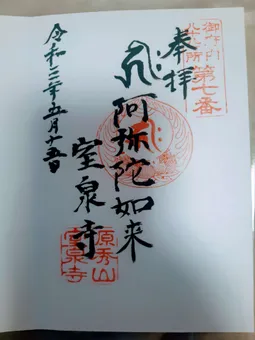 御府内
八十八ヶ所
第七番
奉拝
阿弥陀如来
室泉寺
源秀山
室泉寺
令和三年五月十五日